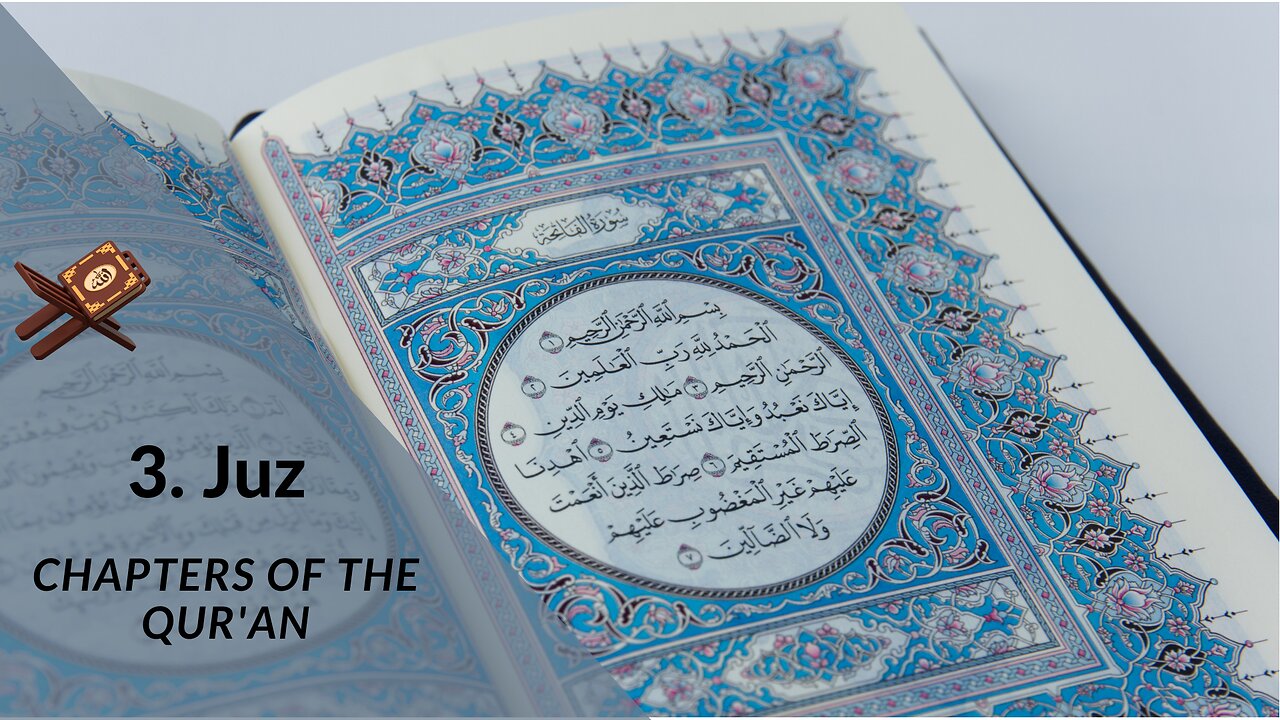 3. Juz
CHAPTERS OF THE
QUR'AN
الله
سُورَةُ الفَاتِحَةِ
بِسْمِ ٱللَّهِ ٱلرَّحْمَٰنِ ٱلرَّحِيمِ ١
ٱلْحَمْدُ لِلَّهِ رَبِّ ٱلْعَٰلَمِينَ ٢
ٱلرَّحْمَٰنِ ٱلرَّحِيمِ ٣ مَٰلِكِ يَوْمِ ٱلدِّينِ ٤
إِيَّاكَ نَعْبُدُ وَإِيَّاكَ نَسْتَعِينُ ٥ ٱهْدِنَا
ٱلصِّرَٰطَ ٱلْمُسْتَقِيمَ ٦ صِرَٰطَ ٱلَّذِينَ أَنْعَمْتَ
عَلَيْهِمْ غَيْرِ ٱلْمَغْضُوبِ عَلَيْهِمْ
وَلَا ٱلضَّآلِّينَ ٧
بِسْمِ ٱللَّهِ ٱلرَّحْمَٰنِ ٱلرَّحِيمِ